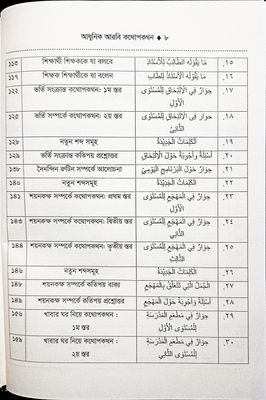 আধুনিক আরবি কথোপকথন ♦ ৮
১১৩ শিক্ষার্থী শিক্ষককে যা বলবে مَا يَقُوْلُهُ الطَّالِبُ لِلْأُسْتَاذِ ১৫.
১১৭ শিক্ষক শিক্ষার্থীকে যা বলেন مَا يَقُوْلُهُ الْأُسْتَاذُ لِلطَّالِبِ ১৬.
১২২ ভর্তি সংক্রান্ত কথোপকথন: ১ম স্তর حِوَارٌ فِي الْاِلْتِحَاقِ لِلْمُسْتَوَى ১৭.
الْأَوَّلِ
১২৫ ভর্তি সম্পর্কে কথোপকথন: ২য় স্তর حوار فِي الْاِلْتِحَاقِ لِلْمُسْتَوَى ১৮.
الثَّانِي
১২৮ নতুন শব্দ সমূহ الْكَلِمَاتُ الْجَدِيْدَةُ ১৯.
১২৯ ভর্তি সংক্রান্ত কতিপয় প্রশ্নোত্তর أَسْئِلَةٌ وَأَجْوِبَةٌ حَوْلَ الْاِلْتِحَاقِ ২০.
১৩৮ দৈনন্দিন রুটিন সম্পর্কে আলোচনা حِوَارٌ حَوْلَ الْبَرْنَامِجِ الْيَوْمِيِّ ২১.
১৪০ নতুন শব্দসমূহ الْكَلِمَاتُ الْجَدِيْدَةُ ২২.
১৪১ শয়নকক্ষ সম্পর্কে কথোপকথন: প্রথম স্তর حِوَارٌ فِي الْمَهْجَعِ لِلْمُسْتَوَى ২৩.
الْأَوَّلِ
১৪৩ শয়নকক্ষ সম্পর্কে কথোপকথন: দ্বিতীয় স্তর حِوَارٌ فِي الْمَهْجَعِ لِلْمُسْتَوَى ২৪.
الثَّانِي
১৪৪ শয়নকক্ষ সম্পর্কে কথোপকথন: তৃতীয় স্তর حِوَارٌ فِي الْمَهْجَعِ لِلْمُسْتَوَى ২৫.
الثَّالِثِ
১৪৬ নতুন শব্দসমূহ الْكَلِمَاتُ الْجَدِيْدَةُ ২৬.
১৪৮ শয়নকক্ষ সম্পর্কে কতিপয় বাক্য الْجُمَلُ الَّتِيْ تَتَعَلَّقُ بِالْمَهْجَعِ ২৭.
১৪৯ শয়নকক্ষ সম্পর্কে কতিপয় প্রশ্নোত্তর أَسْئِلَةٌ وَأَجْوِبَةٌ حَوْلَ الْمَهْجَعِ ২৮.
১৫৬ খাবার ঘর নিয়ে কথোপকথন : حِوَارٌ فِيْ مَطْعَمِ الْمَدْرَسَةِ ২৯.
১ম স্তর لِلْمُسْتَوَى الْأَوَّلِ
১৫৯ খাবার ঘর নিয়ে কথোপকথন : حِوَارٌ فِيْ مَطْعَمِ الْمَدْرَسَةِ ৩০.
২য় স্তর لِلْمُسْتَوَى الثَّانِي